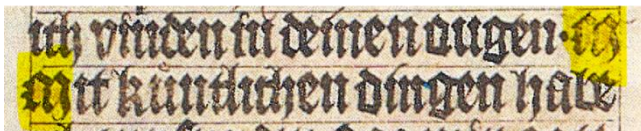 ich vinden in deinen augen·
Mit kuntlichen dingen habe